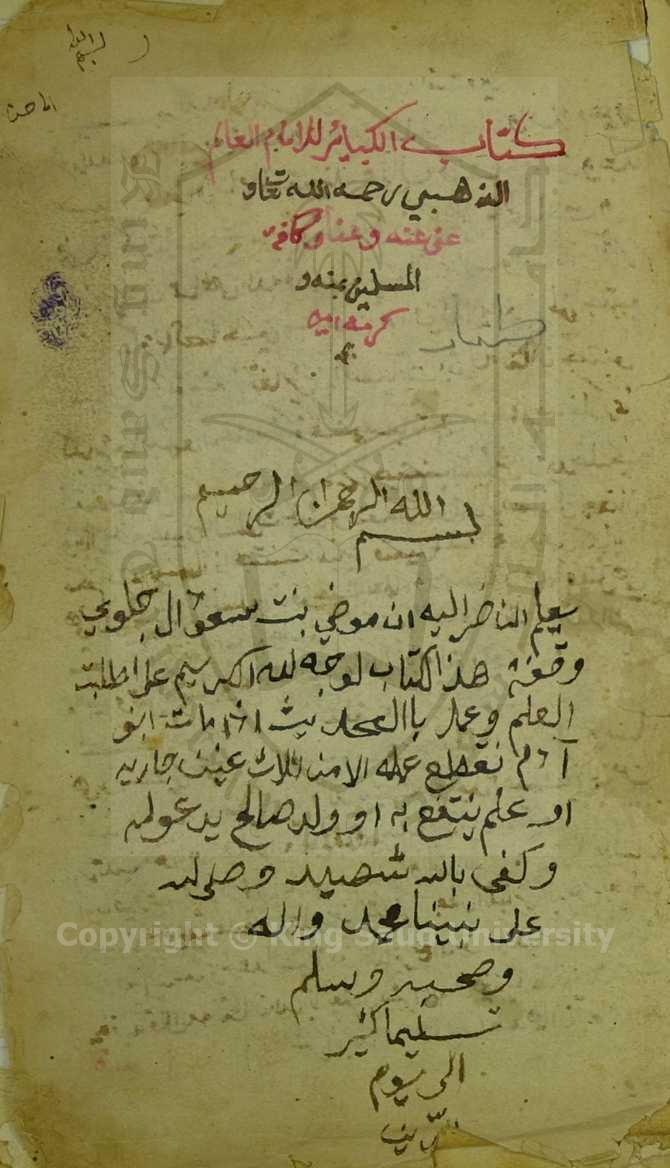 بسم الله
كتاب الكبائر للامام العالم
الذهبي رحمه الله تعالى
عفى عنه وعنا وكافة
المسلمين بمنه و
كرمه امين
بسم الله الرحمن الرحيم
يعلم الناضر اليه ان موضي بنت سعود ال جلوي
وقفة هذا الكتاب لوجه لله الكريم على طلبت
العلم وعملا باالحديث اذا مات ابنو
آدم نقطع عمله الا من ثلاث عينن جاريه
او علم ينتفع به او ولد صالح يدعو له
وكفى بالله شهيد وصلى لله
على نبينا محمد واله
وصحبه وسلم
تسليما كثير
الى يوم
الدين
Copyright © King Saud University